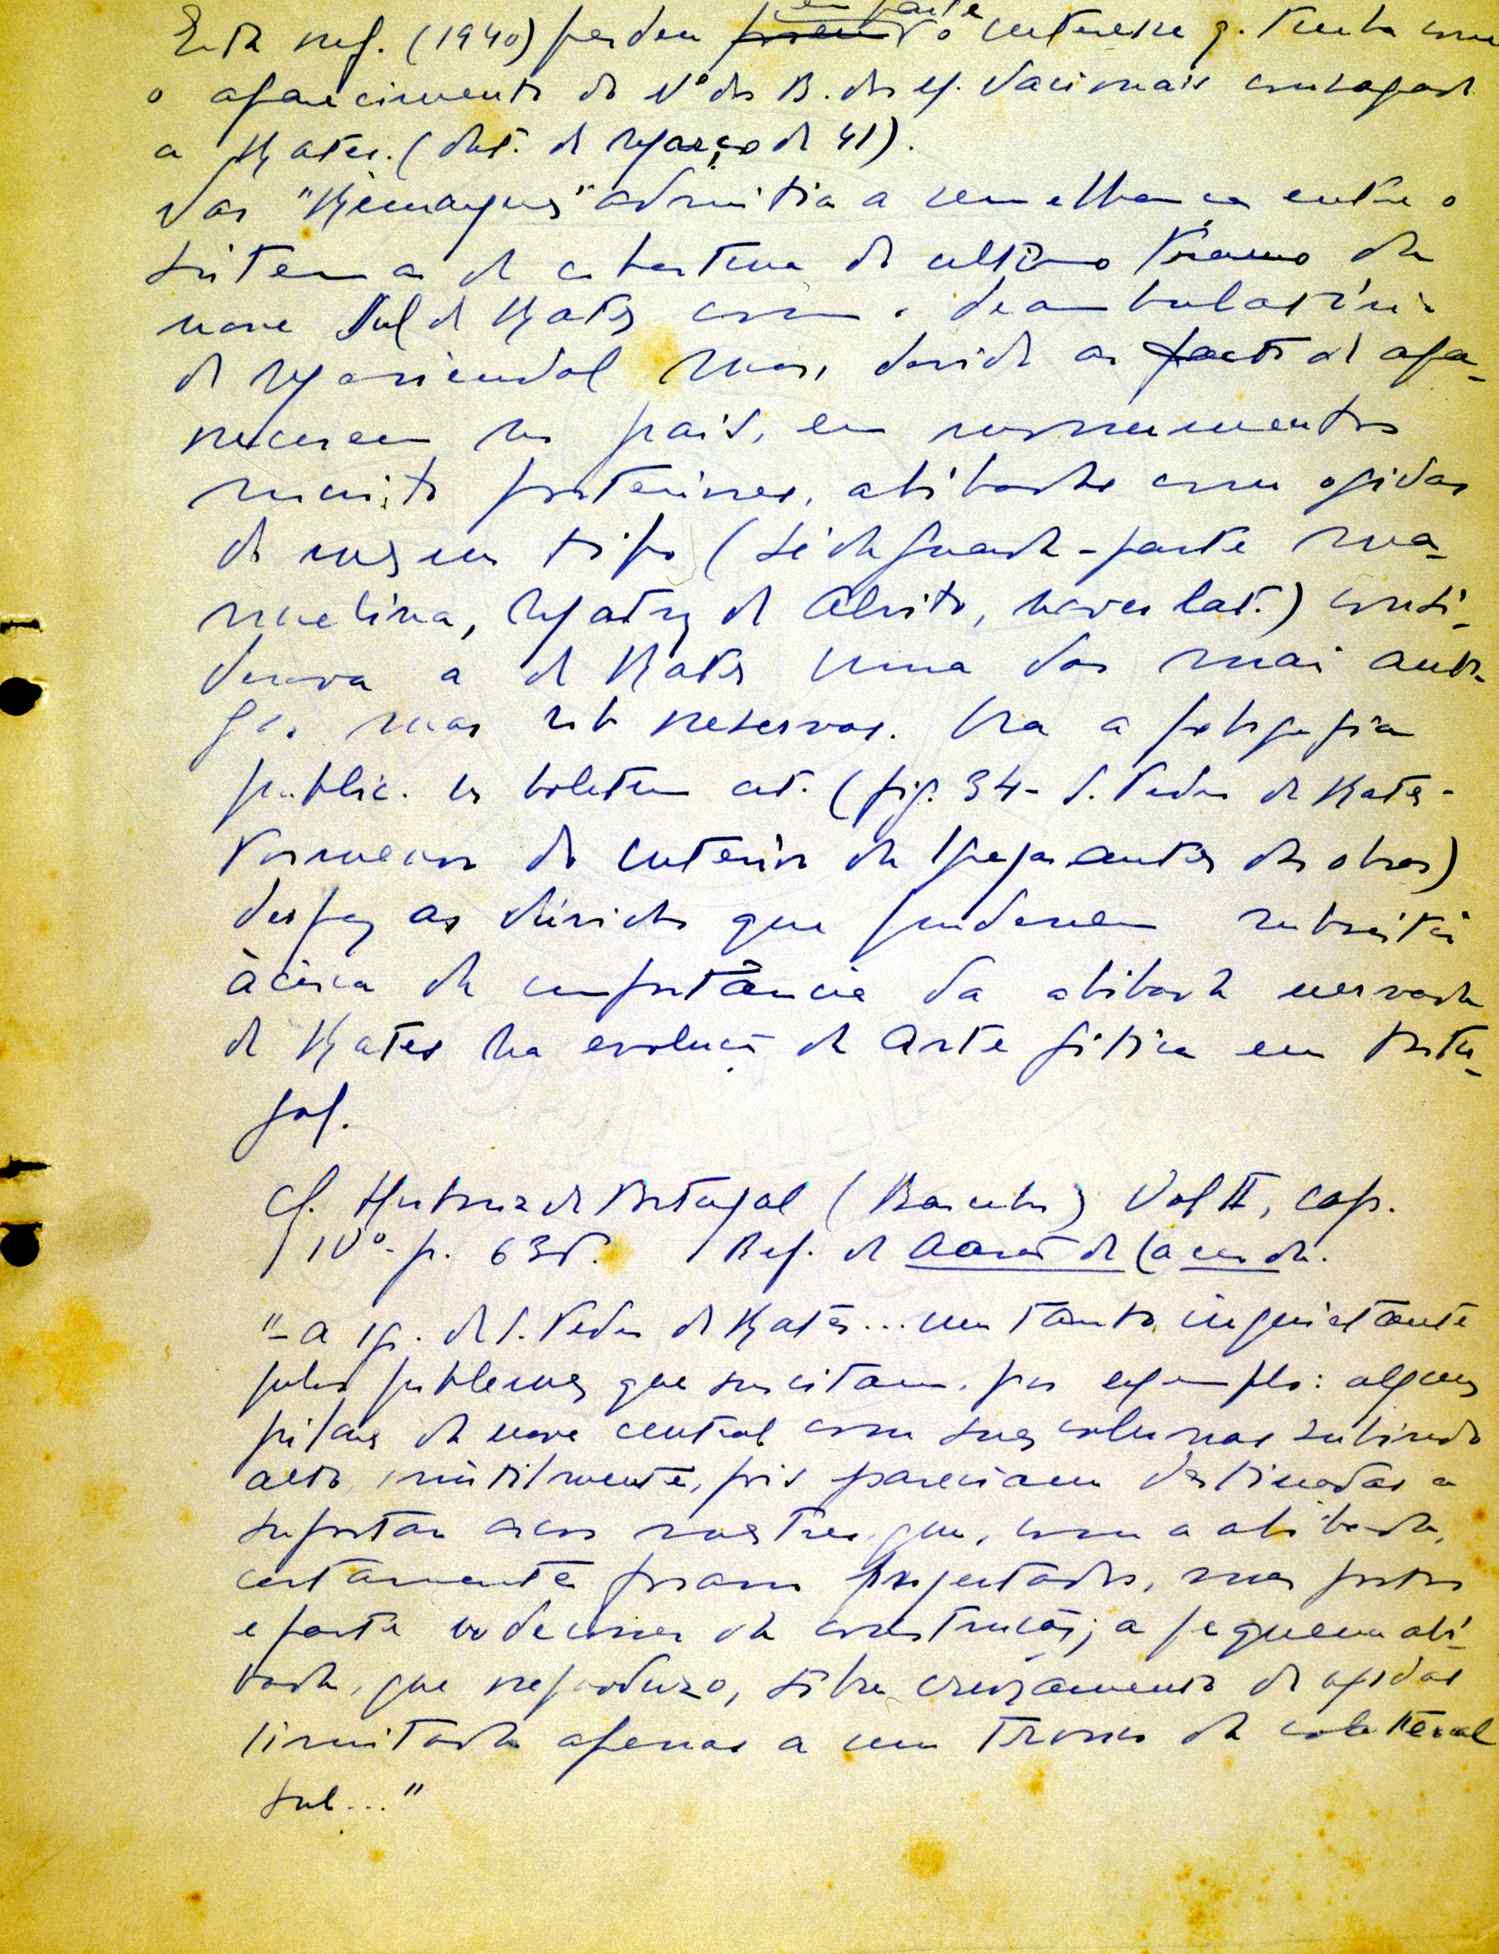 Esta ref. (1940) perdeu em parte o interesse q. tinha com
o aparecimento do Nº do B. dos M. Nacionais consagrado
a Rates. (dat. de Março de 41).
Nas "Remarques" admitia a semelhança entre o
sistema de cobertura do ultimo tramo da
nave Sul de Rates com o deambulatório
do mas, devido ao facto de apa-
recerem no país, em monumentos
muito posteriores, abóbadas com ogivas
do mesmo tipo (Sé da Guarda - parte ma-
nuelina, Matriz de Alvito, naves lat.) consi-
derava a de Rates uma das mais anti-
gas mas sob reservas. Ora a fotografia
public. no boletim cit. (fig. 34 - S. Pedro de Rates -
Pormenor do interior da Igreja antes das obras)
desfaz as dúvidas que pudessem subsistir
àcêrca da importância da abóbada nervada
de Rates na evolução da Arte gótica em Portu-
gal.
Cf. Historia de Portugal (Barcelos) Vol II, cap.
IVº - p. 635. Ref. de Aarão de Lacerda.
"- a ig. de S. Pedro de Rates... um tanto inquietante
pelos problemas que suscitam. por exemplo: alguns
pilares da nave central com suas colunas subindo
alto, inùtilmente, pois pareciam destinadas a
suportar arcos mestres que, com a abóbada,
certamente foram projectados, mas postos
e parte no decorrer da construção; a pequena abó-
bada, que reproduzo, sôbre cruzamento de ogivas
limitada apenas a um tramo da colateral
sul..."